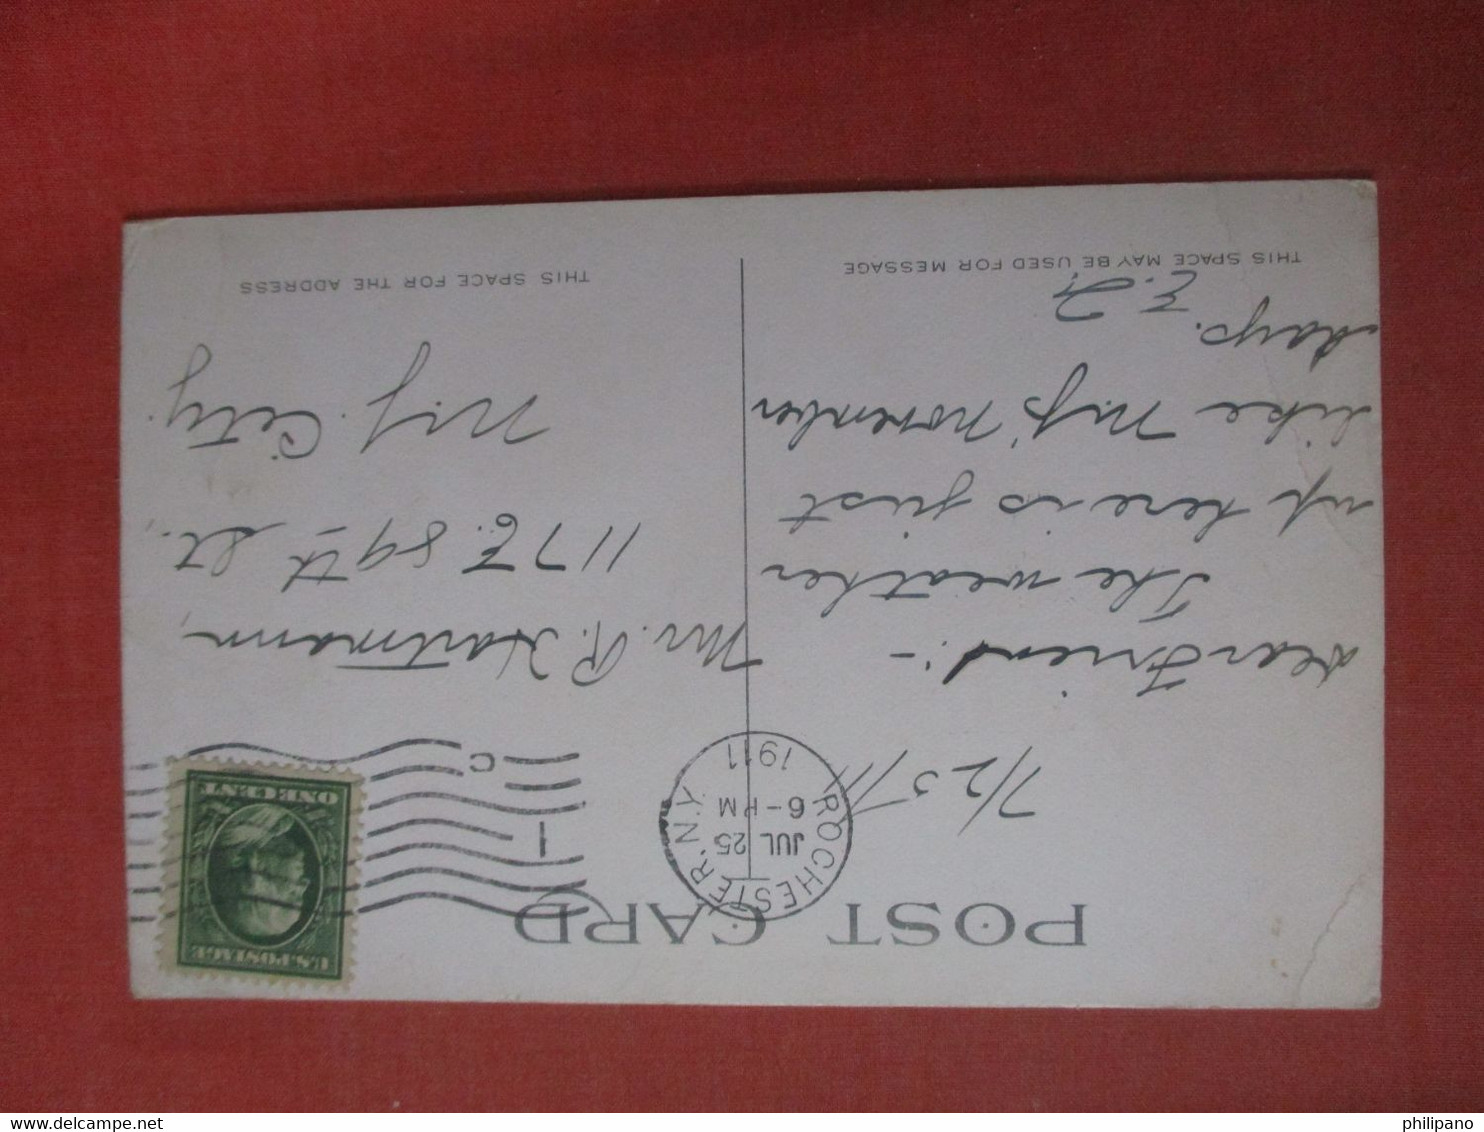 POST CARD
ROCHESTER, N.Y.
JUL 25
6-PM
1911
1
C
U.S. POSTAGE
ONE CENT
7/25/11
Dear Friend:-
The weather
up here is just
like N.Y. November
days.
E. H.
THIS SPACE MAY BE USED FOR MESSAGE
Mr. R. Hartmann,
117 E. 89th St.,
N.Y. City.
THIS SPACE FOR THE ADDRESS
delcampe.net
philipano